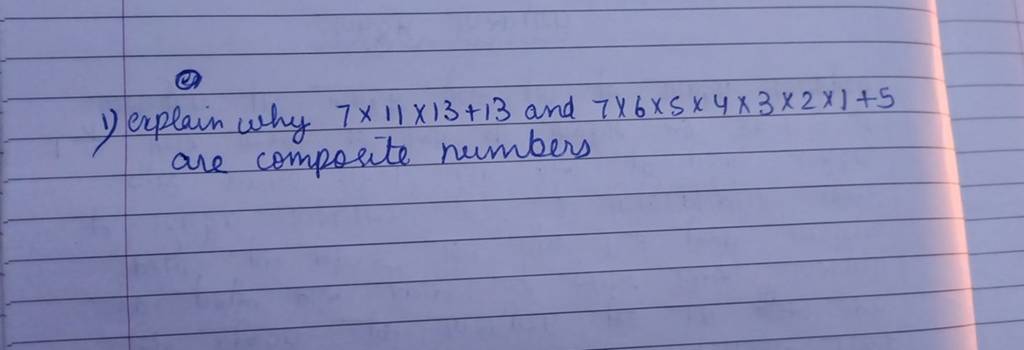 1) explain why 7 × 11 × 13 + 13 and 7 × 6 × 5 × 4 × 3 × 2 × 1 + 5
are composite numbers